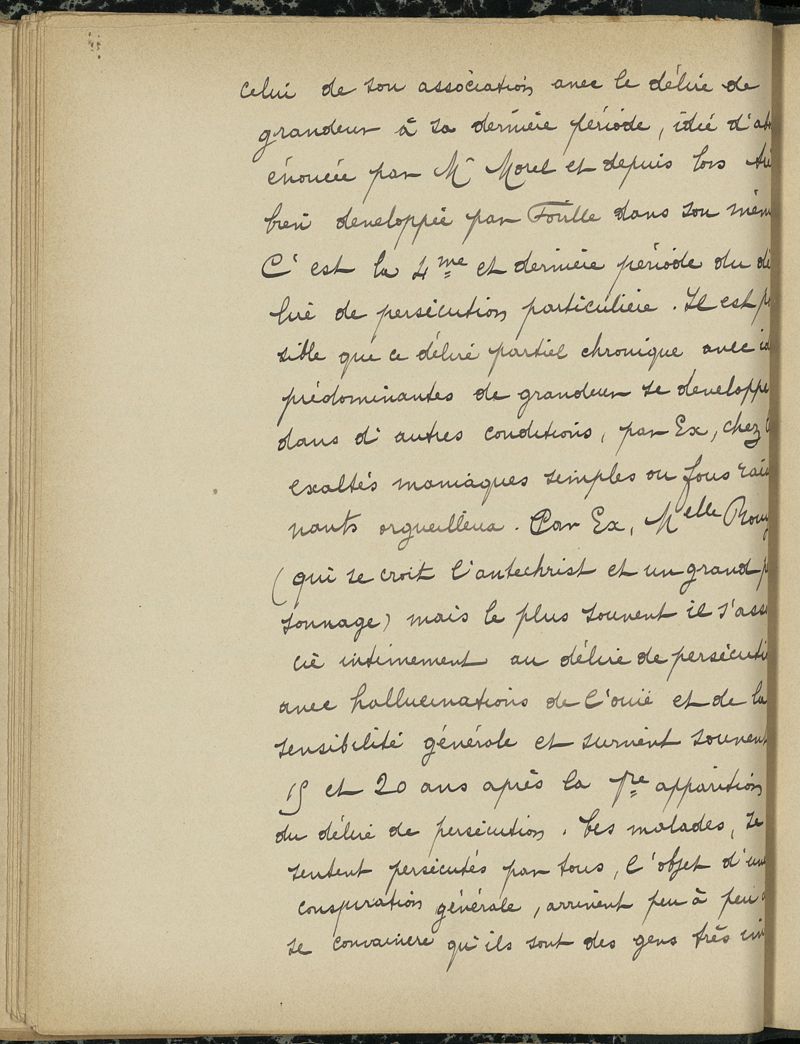 celui de son association avec le délire de
grandeur à sa dernière période, idée d'ab
énoncée par Mr Morel et depuis lors trè
bien developpée par Foville dans son mém
C'est la 4me et dernière période du dé
lire de persécution particulière. Il est po
sible que ce délire partiel chronique avec id
prédominantes de grandeur se developpe
dans d'autres conditions, par Ex, chez
exaltés maniaques simples ou fous rais
nants orgueilleux. Par Ex, Melle Rouy
(qui se croit l'antechrist et un grand p
sonnage) mais le plus souvent il s'asso
cie intimement au délire de persécuti
avec hallucinations de l'ouïe et de la
sensibilité générale et survient souvent
15 et 20 ans après la 1re apparition
du délire de persécution. Ces malades, se
sentent persécutés par tous, l'objet d'une
conspiration générale, arrivent peu à peu
se convaincre qu'ils sont des gens très im